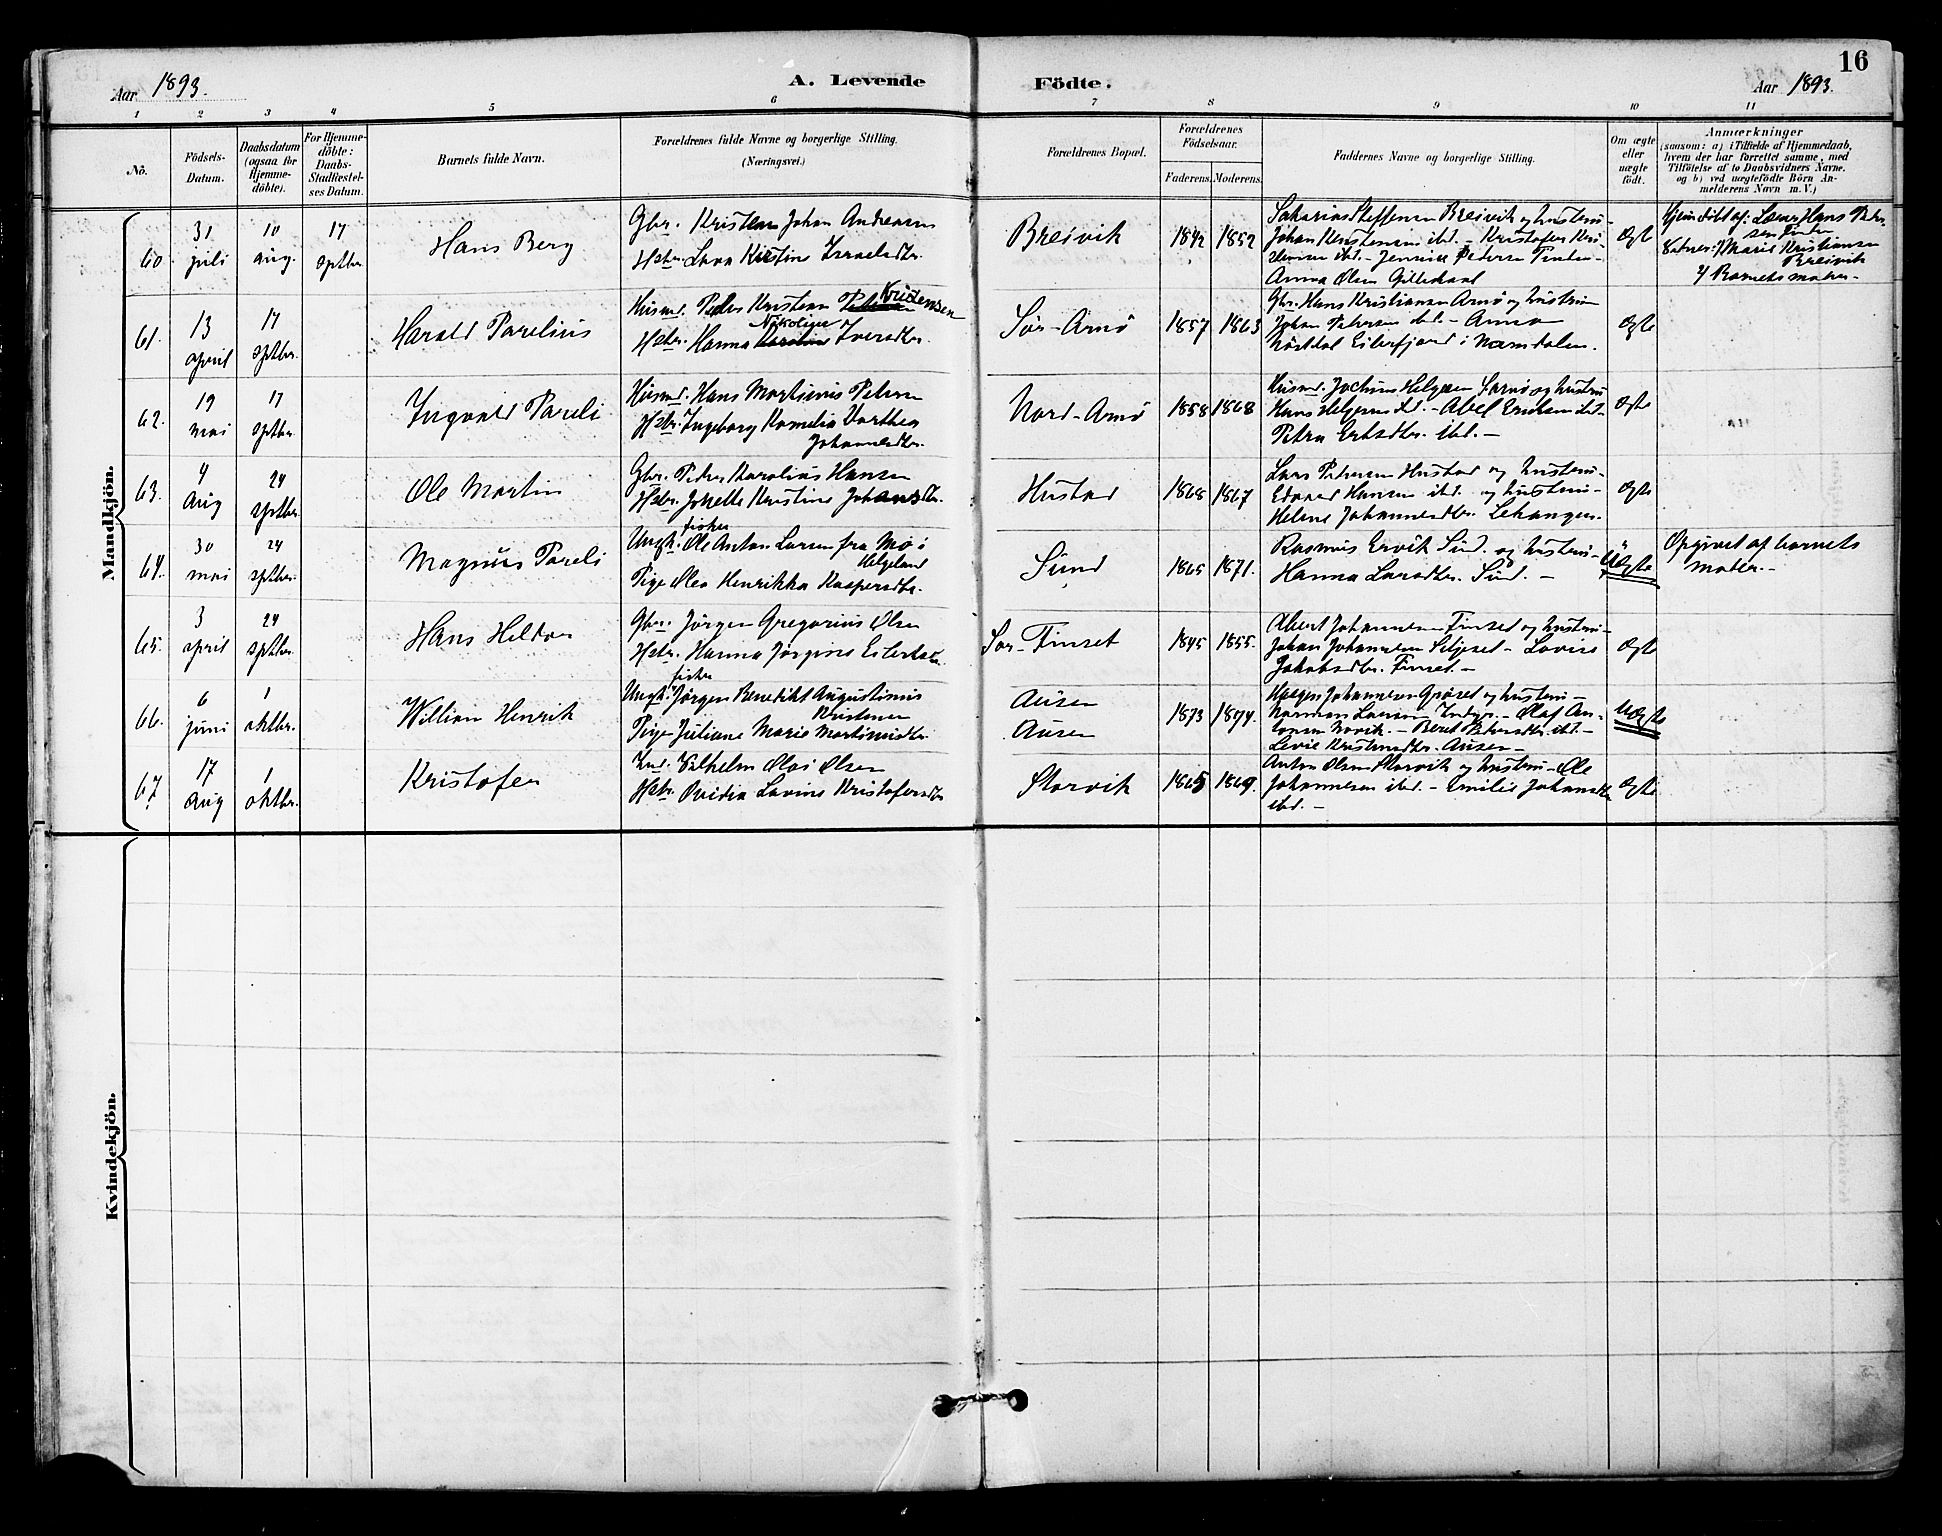 16
Aar 1893.
A. Levende Födte.
Aar 1893.
1 2 3 4 5 6 7 8 9 10 11
No.
Födsels-
Datum.
Daabsdatum
(ogsaa for
Hjemme-
döbte).
For Hjemme-
döbte:
Daabs-
Stadfæstel-
ses Datum.
Barnets fulde Navn.
Forældrenes fulde Navne og borgerlige Stilling.
(Næringsvei.)
Forældrenes Bopæl.
Forældrenes
Födselsaar.
Faderens. Moderens.
Faddernes Navne og borgerlige Stilling.
Om ægte
eller
uægte
födt.
Anmærkninger
(saasom: a) i Tilfælde af Hjemmedaab,
hvem der har forrettet samme, med
Tilföielse af to Daabsvidners Navne.
og b) ved uægtefödte Börn An-
melderens Navn m. V.)
Mandkjön.
60 31 juli 10 aug. 17 sptbr.
Hans Berg
Gbr. Kristian Johan Andreasen
Hstr. Lava Kristine Israelsdtr.
Breivik
1842 1852
Sakarias Steffensen Breivik og hustru -
Johan Kristensen ibd. - Kristofer Kri-
stensen ibd. - Jennine Pedersen
Anna Olsen Gilleskaal
Ægte
Hjemdöbt af: Hans Peder-
sen
1/ Marie Kristiansen
Breivik
2/ Barnets moder -
61. 13 april 17 sptbr.
Harald Parelius
Husmd. Peder Kristian Kristensen
Hstr. Hanna Nikoline Iversdtr.
Sör-Arnö
1857 1863
Gbr. Hans Kristiansen Arnö og hustru
Johan Petersen ibd. - Anna
i Namdalen.
Ægte
62. 19 mai 17 sptbr.
Ingvald Pareli
Husmd. Hans Martinus Petersen
Hstr. Ingeborg Kornelia Dorthea
Johannesdtr.
Nord-Arnö
1858 1868
Husmd. Jochum Helgesen og hustru
Hans Helgesen ibd. - Abel Eriksen ibd.
Petra ibd. -
Ægte
63. 4 aug 24 sptbr.
Ole Martin
Gbr. Peter Karolius Hansen
Hstr. Jonette Kristine Johansdtr.
Hustad
1868 1867
Lars Petersen Hustad og hustru -
Edvard Hansen ibd. og hustru -
Helene Johannesdtr. Lekanger.
Ægte
64. 30 mai 24 sptbr.
Magnus Pareli
fisker
Ungk. Ole Anton Larsen fra Mo i
Helgeland
Pige Olea Henrikka Kaspersdtr.
Sund
1865 1871.
Rasmus Ervik Sund. og hustru -
Hanna Larsdtr. Sund. -
Uægte
Opgivet af barnets
moder. -
65. 3 april 24 sptbr.
Hans Heldor
Gbr. Jörgen Gregorius Olsen
Hstr. Hanna Jörgine Eilertsdtr.
Sör-Finset
1845 1855.
Albert Johannesen Finset og hustru -
Johan Johannesen Siljeset - Lovise
Jakobsdtr. Finset -
Ægte
66. 6 juni 1 oktbr.
William Henrik
fisker
Ungk. Jörgen Benedikt Augustinus
Kristensen
Pige Juliane Marie Martinusdtr.
Ausen
Ausen
1873 1874.
Johannesen Gröset og hustru -
Larsen - Olaf An-
tonsen - Beret Pedersdtr. ibd. -
Ausen -
Uægte
67. 17 aug 1 oktbr.
Kristofer
Ind. Vilhelm Olai Olsen
Hstr. Ovidia Lovine Kristofersdtr
Storvik
1865 1869.
Anton Olsen Storvik og hustru - Ole
Johannesen ibd. - Emilie Johansdtr
ibd. -
Ægte
Kvindekjön.